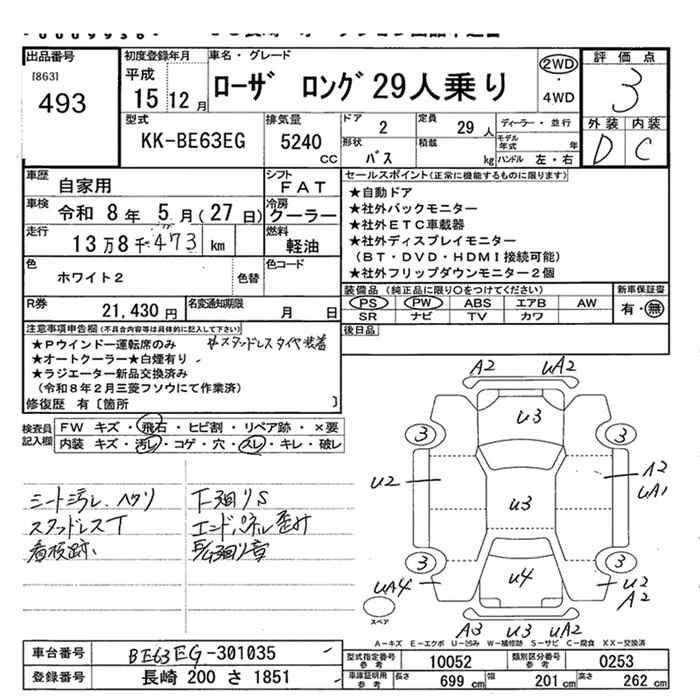 出品番号
[863]
493
初度登録年月
平成
15 12 月
車名・グレード
ローザ ロング29人乗り
2WD
・
4WD
評価点
3
外装 内装
D C
型式
KK-BE63EG
排気量
5240
cc
ドア
2
定員
29 人
形状
バス
積載
kg
ディーラー・並行
モデル年式 年
ハンドル 左・右
車歴
自家用
シフト
FAT
車検
令和 8年 5月(27日)
冷房
クーラー
走行
13万8千473 km
燃料
軽油
色
ホワイト2
色替
色コード
R券
21,430円
名変通知期限
月 日
セールスポイント(正常に機能するものに限ります)
★自動ドア
★社外バックモニター
★社外ETC車載器
★社外ディスプレイモニター
(BT・DVD・HDMI接続可能)
★社外フリップダウンモニター2個
装備品(純正品に限り○をつけてください)
PS PW ABS エアB AW
SR ナビ TV カワ
新車保証書
有・無
後日品
注意事項申告欄(不具合内容等は具体的に記入して下さい)
★Pウインドー運転席のみ
★オートクーラー★白煙有り
★スタッドレスタイヤ装着
★ラジエーター新品交換済み
(令和8年2月三菱フソウにて作業済)
修復歴 有〔箇所 〕
検査員記入欄
FW キズ・飛石・ヒビ割・リペア跡・×要
内装 キズ・汚レ・コゲ・穴・スレ・キレ・破レ
シート汚レ、ヘタリ
スタッドレスT
看板跡
下廻りS
エンドパネル歪み
A2 uA2
u3
3 3
u2
u3
A2
uA1
3 3
u4
uA4
u2
A2
A3 u3 uA2
スペア
A-キズ E-エクボ U-凹み W-補修跡 S-サビ C-腐食 XX-交換済
車台番号
BE63EG-301035
登録番号
長崎 200 さ 1851
型式指定番号
参考
10052
類別区分番号
参考
0253
車庫証明用
参考
長さ
699 cm
幅
201 cm
高さ
262 cm